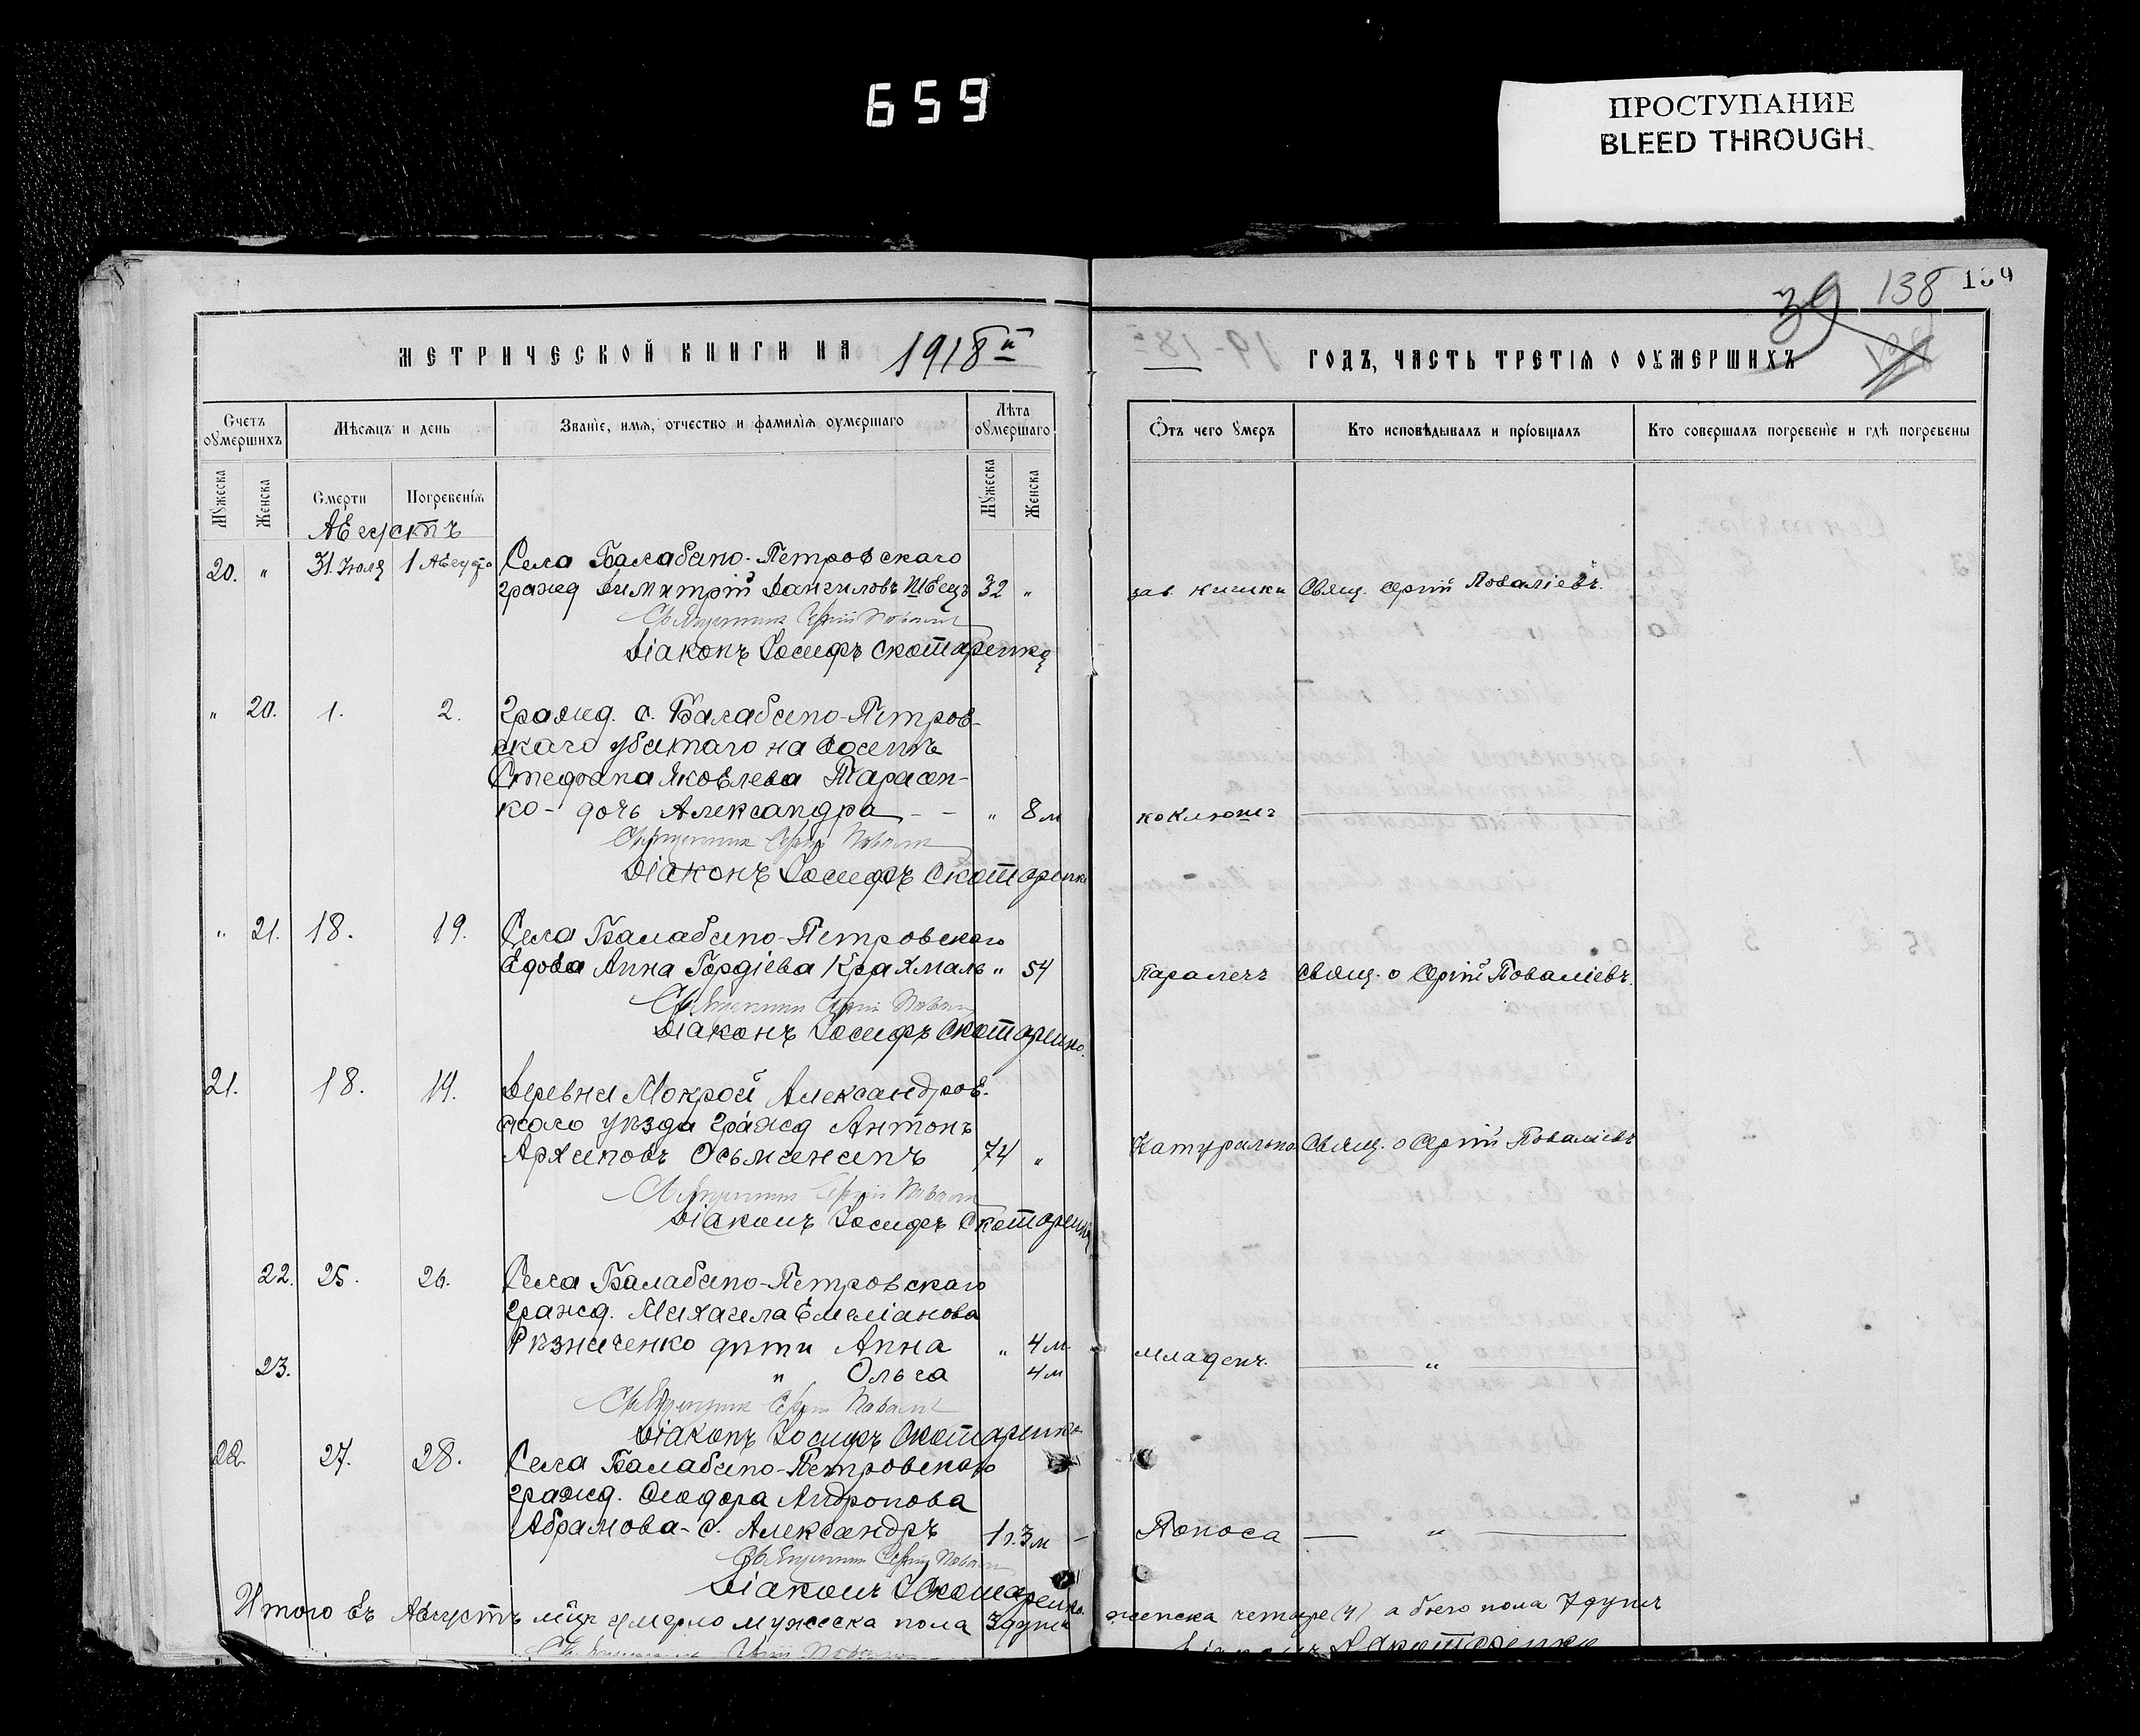 659
ПРОСТУПАНИЕ
BLEED THROUGH
39 138 139
МЕТРИЧЕСКОЙ КНИГИ НА 1918й ГОДЪ, ЧАСТЬ ТРЕТІѦ О ОУМЕРШИХЪ
Счетъ оумершихъ
Мѣсѧцъ и день
Званіе, имѧ, отчество и фамиліѧ оумершаго
Лѣта оумершаго
Ѿтъ чего умеръ
Кто исповѣдывалъ и пріобщалъ
Кто совершалъ погребеніе и гдѣ погребены
Мужеска
Женска
Смерти
Погребеніѧ
Мужеска
Женска
Августъ
20. " 31. Іюля 1 Августа Села Балабино-Петровскаго
гражд Димитрій Данiиловъ Швецъ 32 " зав кишки Свящ. Сергій Поваліевъ.
Священникъ Сергій Поваліевъ
Діаконъ Іосифъ Скотаренко
" 20. 1. 2. гражд. с. Балабино-Петров-
скаго убитаго на войнѣ
Стефана Яковлева Тарасен-
ко - дочь Александра - - " 8 м коклюшъ
Священникъ Сергій Поваліевъ
Діаконъ Іосифъ Скотаренко
" 21. 18. 19. Села Балабино-Петровскаго
вдова Анна Гордіева Крахмаль " 54 Параличъ Свящ. о Сергій Поваліевъ.
Священникъ Сергій Поваліевъ
Діаконъ Іосифъ Скотаренко.
21. 18. 19. Деревни Мокрой Александров-
скаго уѣзда гражд Антонъ
Архиповъ Осьмининъ 74 " Натурально Свящ. о Сергій Поваліевъ
Священникъ Сергій Поваліевъ
Діаконъ Іосифъ Скотаренко
22. 25. 26. Села Балабино-Петровскаго
гражд. Михаила Емеліанова
Рѣзниченко дѣти Анна " 4 м. младенч. "
23. " Ольга 4 м
Священникъ Сергій Поваліевъ
Діаконъ Іосифъ Скотаренко
22. 27. 28. Села Балабино-Петровскаго
гражд. Ѳеодора Андронова
Абрамова - с. Александръ 1 г. 3 м - Поноса "
Священникъ Сергій Поваліевъ
Діаконъ І Скотаренко.
Итого въ Августѣ м̃цѣ умерло мужеска пола 3 души женска четыре (4) а обоего пола 7 душъ
Священникъ Сергій Поваліевъ Діаконъ І Скотаренко